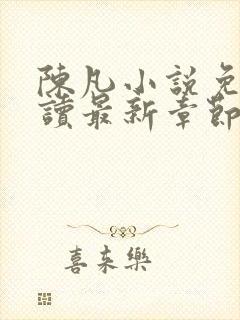 陳凡小說免
讀最新章節
喜来樂